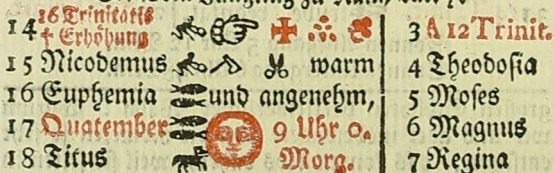 14 16 Trinitatis
† Erhöhung
3 A 12 Trinit.
15 Nicodemus warm
4 Theodosia
16 Euphemia und angenehm,
5 Moses
17 Quatember 9 Uhr 0.
6 Magnus
18 Titus Morg.
7 Regina